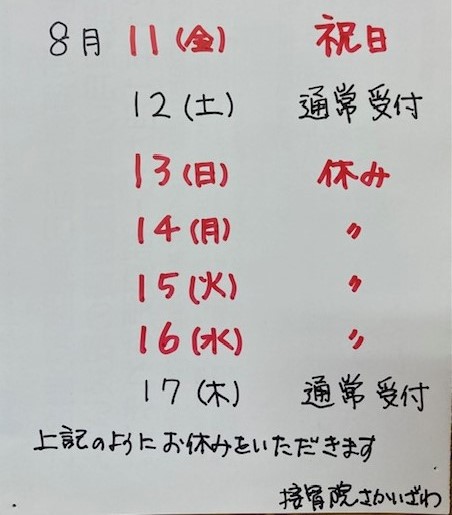 8月 11(金) 祝日
12(土) 通常受付
13(日) 休み
14(月) 〃
15(火) 〃
16(水) 〃
17(木) 通常受付
上記のようにお休みをいただきます
接骨院さかいざわ